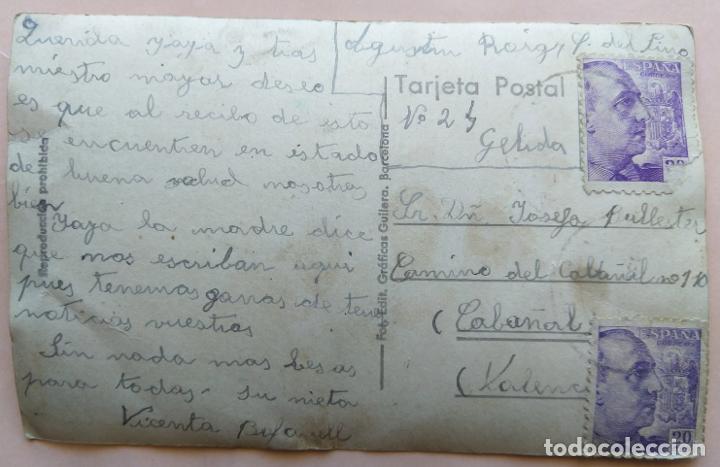 Querida yaya y tias
nuestro mayor deseo
es que al recibo de esto
se encuentren en estado
de buena salud nosotros
bien
Yaya la madre dice
que nos escriban aqui
pues tenemos ganas de tener
noticias vuestras
Sin nada mas besos
para todas su nieta
Vicenta
Agustin Roig, P. del Pino
Nº 24
Gelida
Tarjeta Postal
Reproducción prohibida
Fot. Edit. Gráficas Guilera. Barcelona
Sr. Dñ Josefa Ballester
Camino del Cabañal nº 110
(Cabañal
(Valencia
ESPAÑA
CORREOS
20
ESPAÑA
CORREOS
20
todocoleccion.net